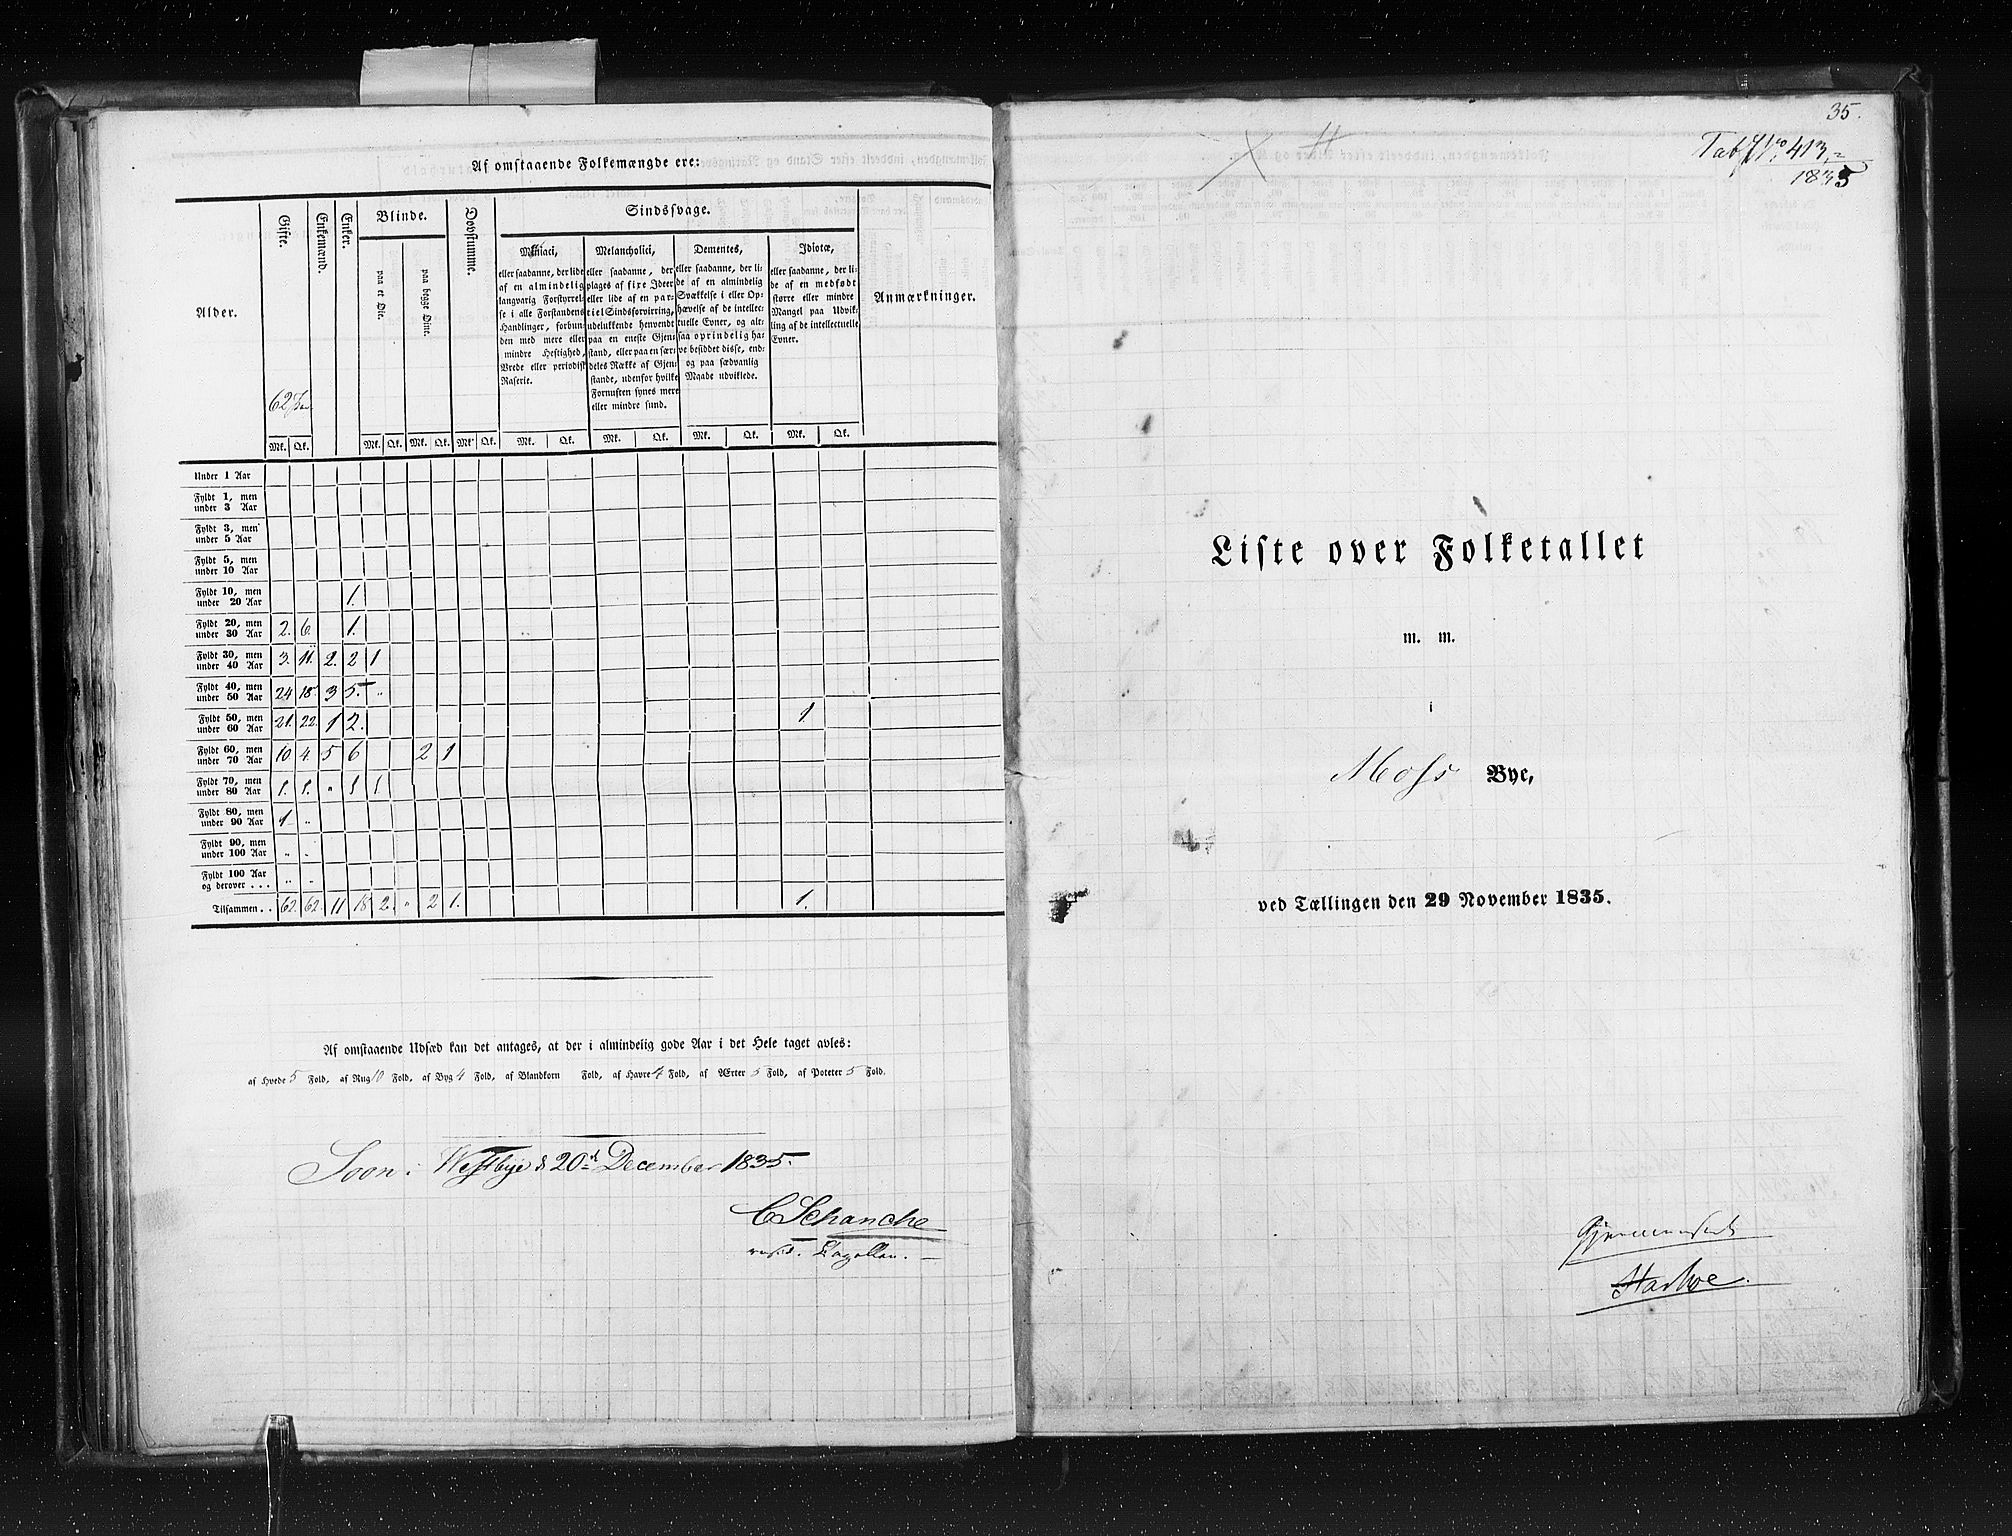 Af omstaaende Folkemængde ere:
Alder.
Gifte.
Enkemænd.
Enker.
Blinde.
paa et Øie.
paa begge Øine.
Døvstumme.
Sindssvage.
Maniaci,
eller saadanne, der lide
af en almindelig
langvarig Forstyrrel-
se i alle Forstandens
Handlinger, forbun-
den med mere eller
mindre Heftighed,
Vrede eller periodisk
Raserie.
Melancholici,
eller saadanne, der
plages af fixe Ideer
eller lide af en par-
tiel Sindsforvirring,
udelukkende henvendt
paa en eneste Gjen-
stand, eller paa en sær-
deles Række af Gjen-
stande, udenfor hvilke
Fornuften synes mere
eller mindre sund.
Dementes,
eller saadanne, der li-
de af en almindelig
Svækkelse i eller Op-
hævelse af de intellec-
tuelle Evner, og alt-
saa oprindelig ha-
ve besiddet disse, end-
og paa sædvanlig
Maade udviklede.
Idiotæ,
eller saadanne, der li-
de af en medfødt
større eller mindre
Mangel paa Udvik-
ling af de intellectuelle
Evner.
Anmærkninger.
62 Par.
Mk. Qk. Mk. Qk. Mk. Qk. Mk. Qk. Mk. Qk. Mk. Qk. Mk. Qk. Mk. Qk.
Under 1 Aar
Fyldt 1, men
under 3 Aar
Fyldt 3, men
under 5 Aar
Fyldt 5, men
under 10 Aar
Fyldt 10, men
under 20 Aar 1.
Fyldt 20, men
under 30 Aar 2. 6. 1.
Fyldt 30, men
under 40 Aar 3. 11. 2. 2 1
Fyldt 40, men
under 50 Aar 24 18 3 5. „
Fyldt 50, men
under 60 Aar 21. 22. 1 2. 1.
Fyldt 60, men
under 70 Aar 10 4 5 6 2 1
Fyldt 70, men
under 80 Aar 1. 1. „ 1 1
Fyldt 80, men
under 90 Aar 1 „
Fyldt 90, men
under 100 Aar „ „
Fyldt 100 Aar
og derover . . . „ „
Tilsammen . . 62. 62. 11 18 2. „ 2 1. 1.
Af omstaaende Udsæd kan det antages, at der i almindelig gode Aar i det Hele taget avles:
af Hvede 5 Fold, af Rug 10 Fold, af Byg 4 Fold, af Blandkorn Fold, af Havre 4 Fold, af Ærter 5 Fold, af Poteter 5 Fold.
Soon i Westbye d 20d December 1835.
C Schanche
resid. Capellan.
35.
Tab No 413.
1835
Liste over Folketallet
m. m.
i
Moss Bye,
ved Tællingen den 29 November 1835.